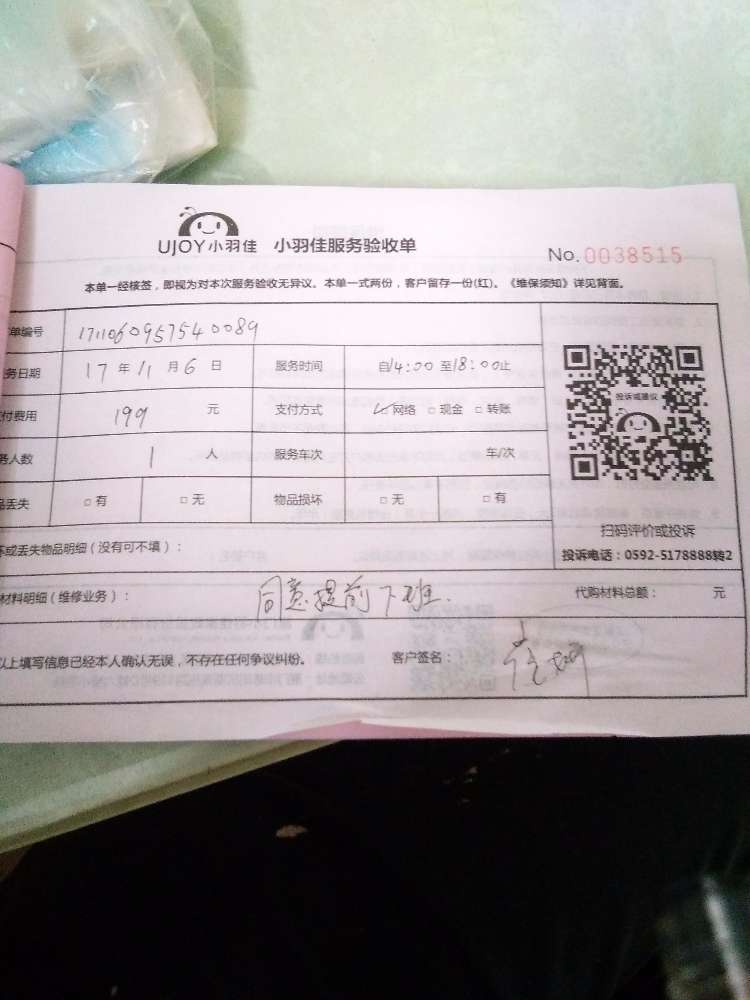 UJOY小羽佳 小羽佳服务验收单 No.0038515
本单一经核签，即视为对本次服务验收无异议。本单一式两份，客户留存一份(红)。《维保须知》详见背面。
单编号 1711060957540089
务日期 17年11月6日 服务时间 自14:00至18:00止
付费用 199 元 支付方式 网络 □现金 □转账
务人数 1 人 服务车次 车/次
品丢失 □有 □无 物品损坏 □无 □有
投诉或建议
扫码评价或投诉
投诉电话：0592-5178888转2
坏或丢失物品明细（没有可不填）：
材料明细（维修业务）： 同意提前下班. 代购材料总额： 元
以上填写信息已经本人确认无误，不存在任何争议纠纷。 客户签名：